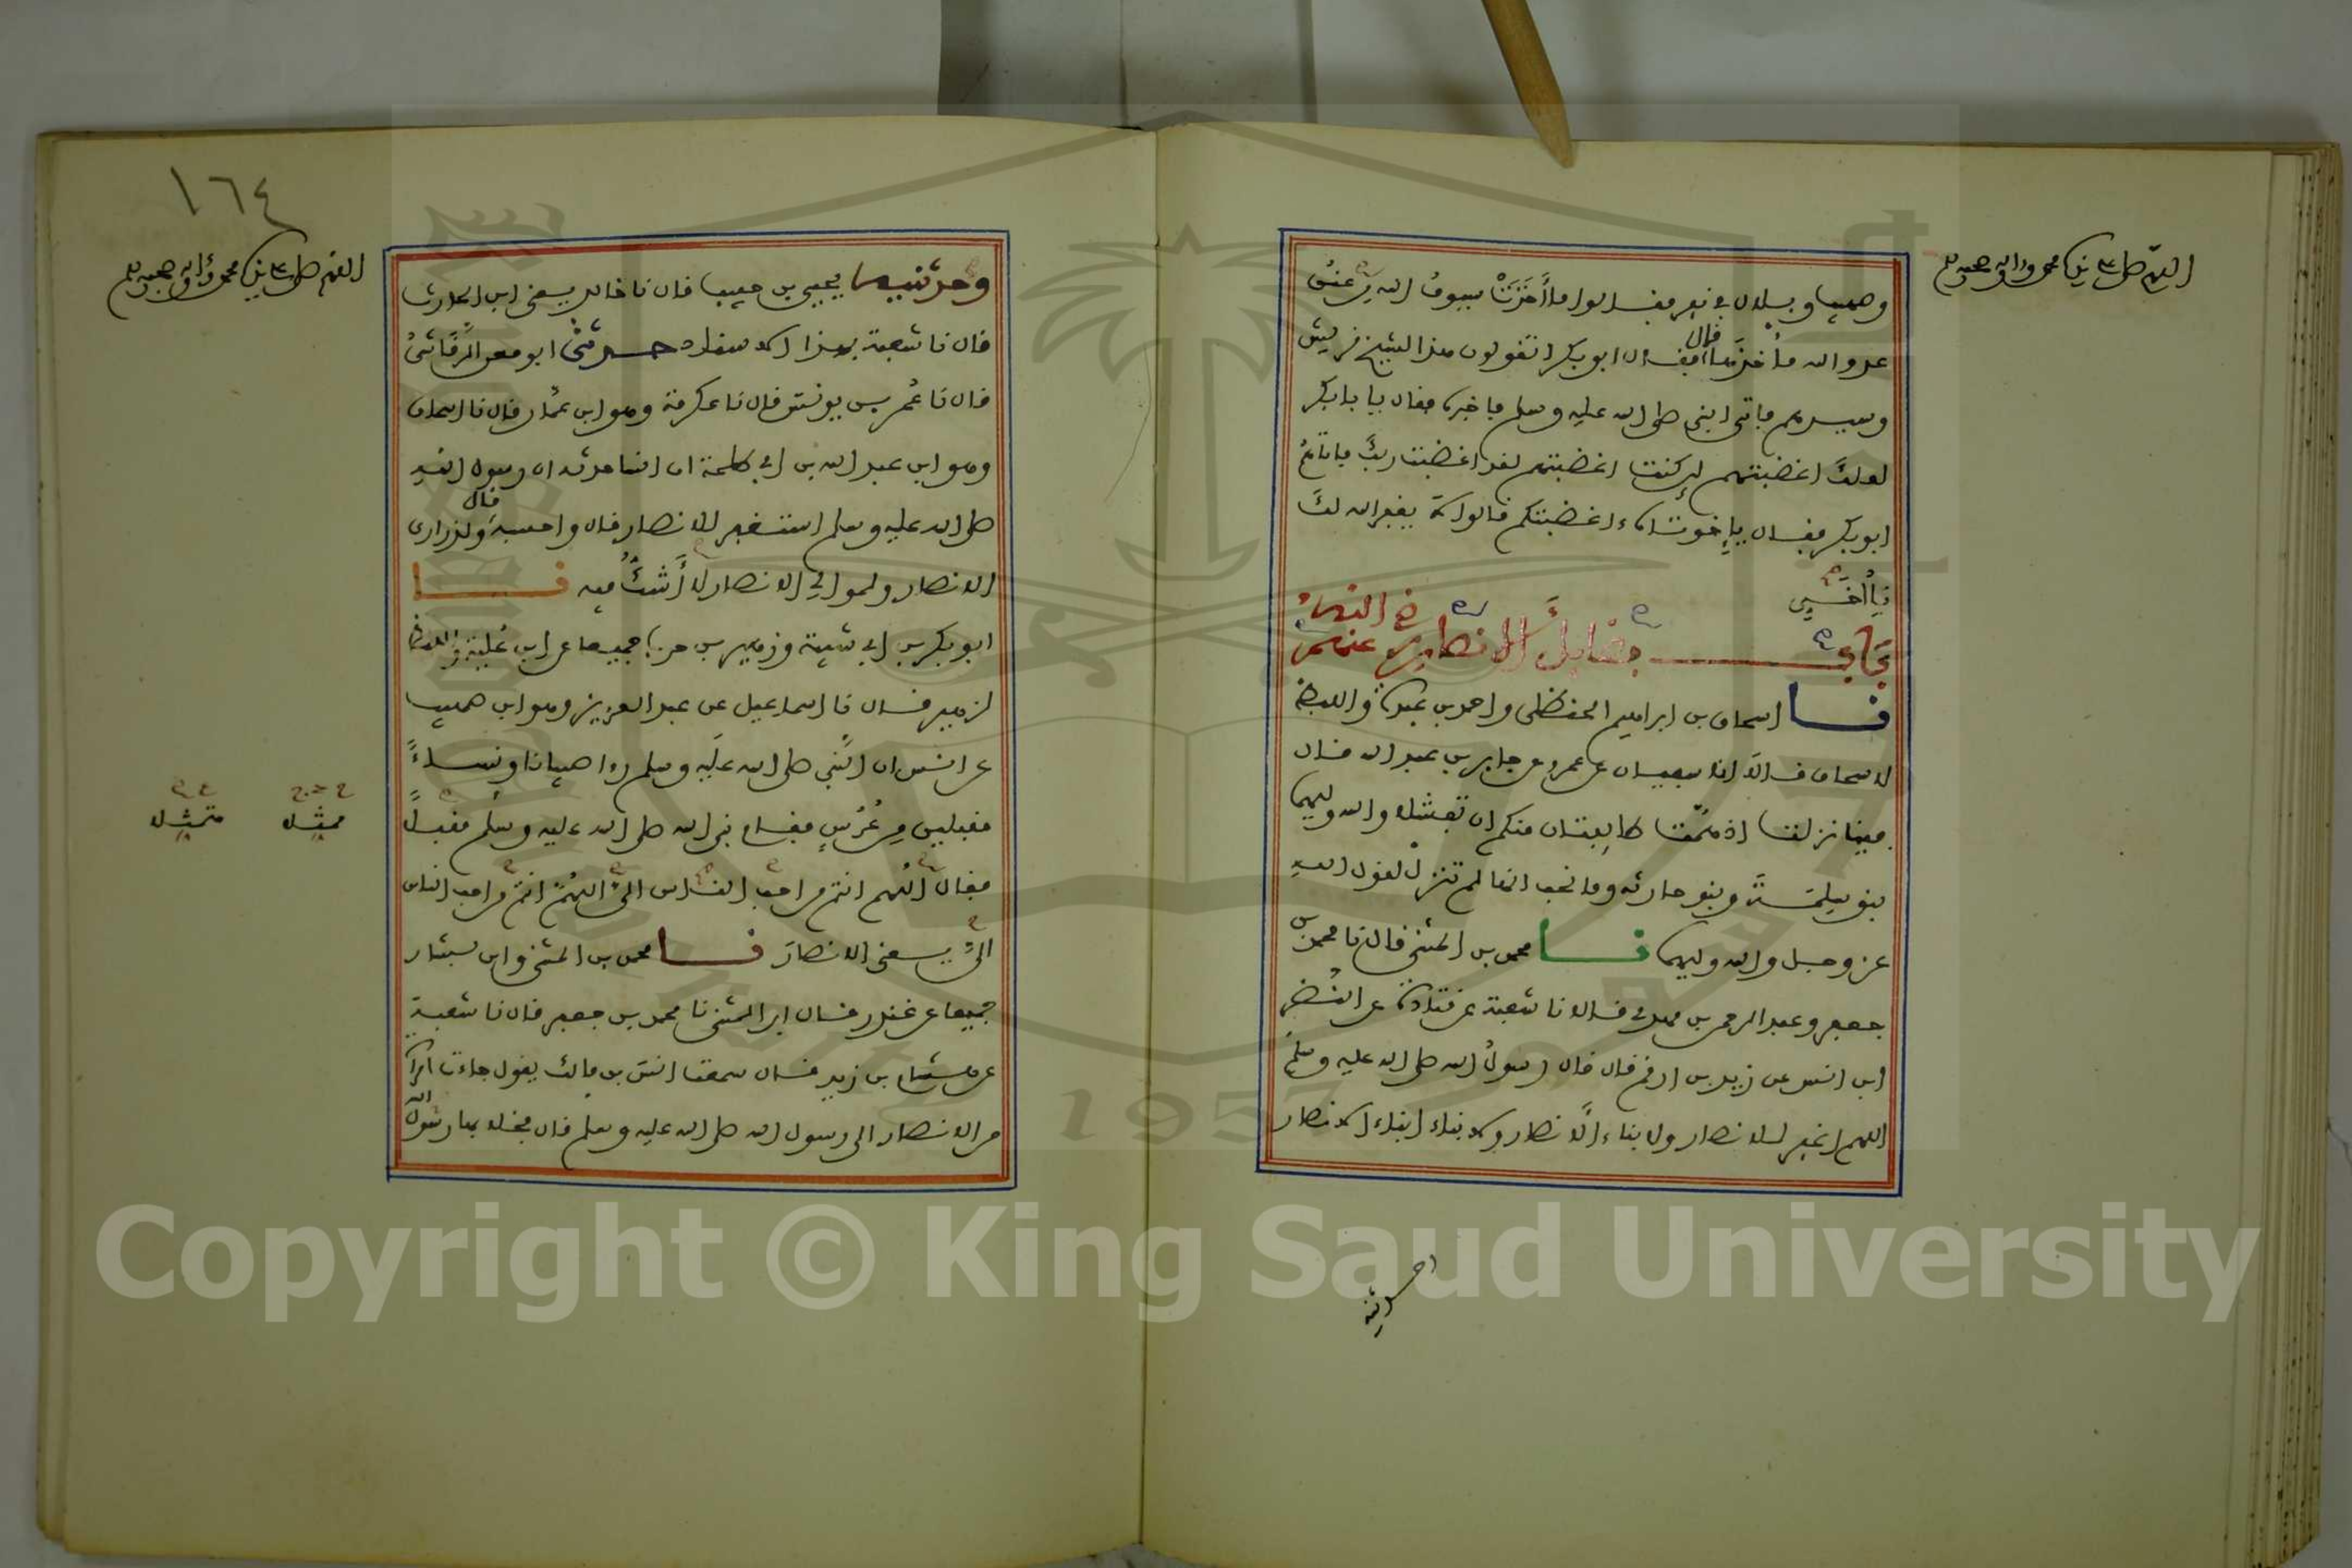 اللهم صل على سيدنا محمد واله وصحبه وسلم
وصهيب وبلال في نفر فقالوا ما أخذت سيوف الله من عنق
عدو الله مأخذها قال فقال ابو بكر اتقولون هذا لشيخ قريش
وسيدهم فاتى النبي صلى الله عليه وسلم فاخبره فقال يا بابكر
لعلك اغضبتهم لين كنت اغضبتهم لقد اغضبت ربك فاتاهم
ابو بكر فقال يا إخوتاه ءاغضبتكم قالوا لا يغفر الله لك
يا أخي
باب فضايل الانصار رضي الله عنهم
نا اسحاق بن ابراهيم الحنظلي واحمد بن عبدة واللفظ
لاسحاق قالا انا سفيان عن عمرو عن جابر بن عبد الله قال
فينا نزلت اذ همت طايفتان منكم ان تفشلا والله وليهما
بنو سلمة وبنو حارثه وما نحب انها لم تنزل لقول الله
عز وجل والله وليهما نا محمد بن المثنى قال نا محمد بن
جعفر وعبد الرحمن بن مهدي قالا نا شعبة عن قتادة عن النضر
ابن انس عن زيد بن ارقم قال قال رسول الله صلى الله عليه وسلم
اللهم اغفر للانصار ولابناء الانصار ولابناء ابناء الانصار
١٦٤
اللهم صل على سيدنا محمد واله وصحبه وسلم
وحدثنيه يحيى بن حبيب قال نا خالد يعني ابن الحارث
قال نا شعبة بهذا الاسناد حدثني ابو معن الرقاشي
قال نا عمر بن يونس قال نا عكرمة وهو ابن عمار قال نا اسحاق
وهو ابن عبد الله بن ابي طلحة ان انسا حدثه ان رسول الله
صلى الله عليه وسلم استغفر للانصار قال واحسبه قال ولذراري
الانصار ولموالي الانصار لا أشك فيه نا
ابو بكر بن ابي شيبة وزهير بن حرب جميعا عن ابن علية واللفظ
لزهير قال نا اسماعيل عن عبد العزيز وهو ابن صهيب
عن انس ان النبي صلى الله عليه وسلم راا صبيانا ونساء
مقبلين من عرس فقام نبي الله صلى الله عليه وسلم مقبلا
فقال اللهم انتم من احب الناس الي اللهم انتم من احب الناس
الي يعني الانصار نا محمد بن المثنى وابن بشار
جميعا عن غندر قال ابن المثنى نا محمد بن جعفر قال نا شعبة
عن هشام بن زيد قال سمعت انس بن مالك يقول جاءت امراة
من الانصار الى رسول الله صلى الله عليه وسلم قال فخلا بها رسول الله
ممثلا
متمثلا
Copyright © King Saud University
1957